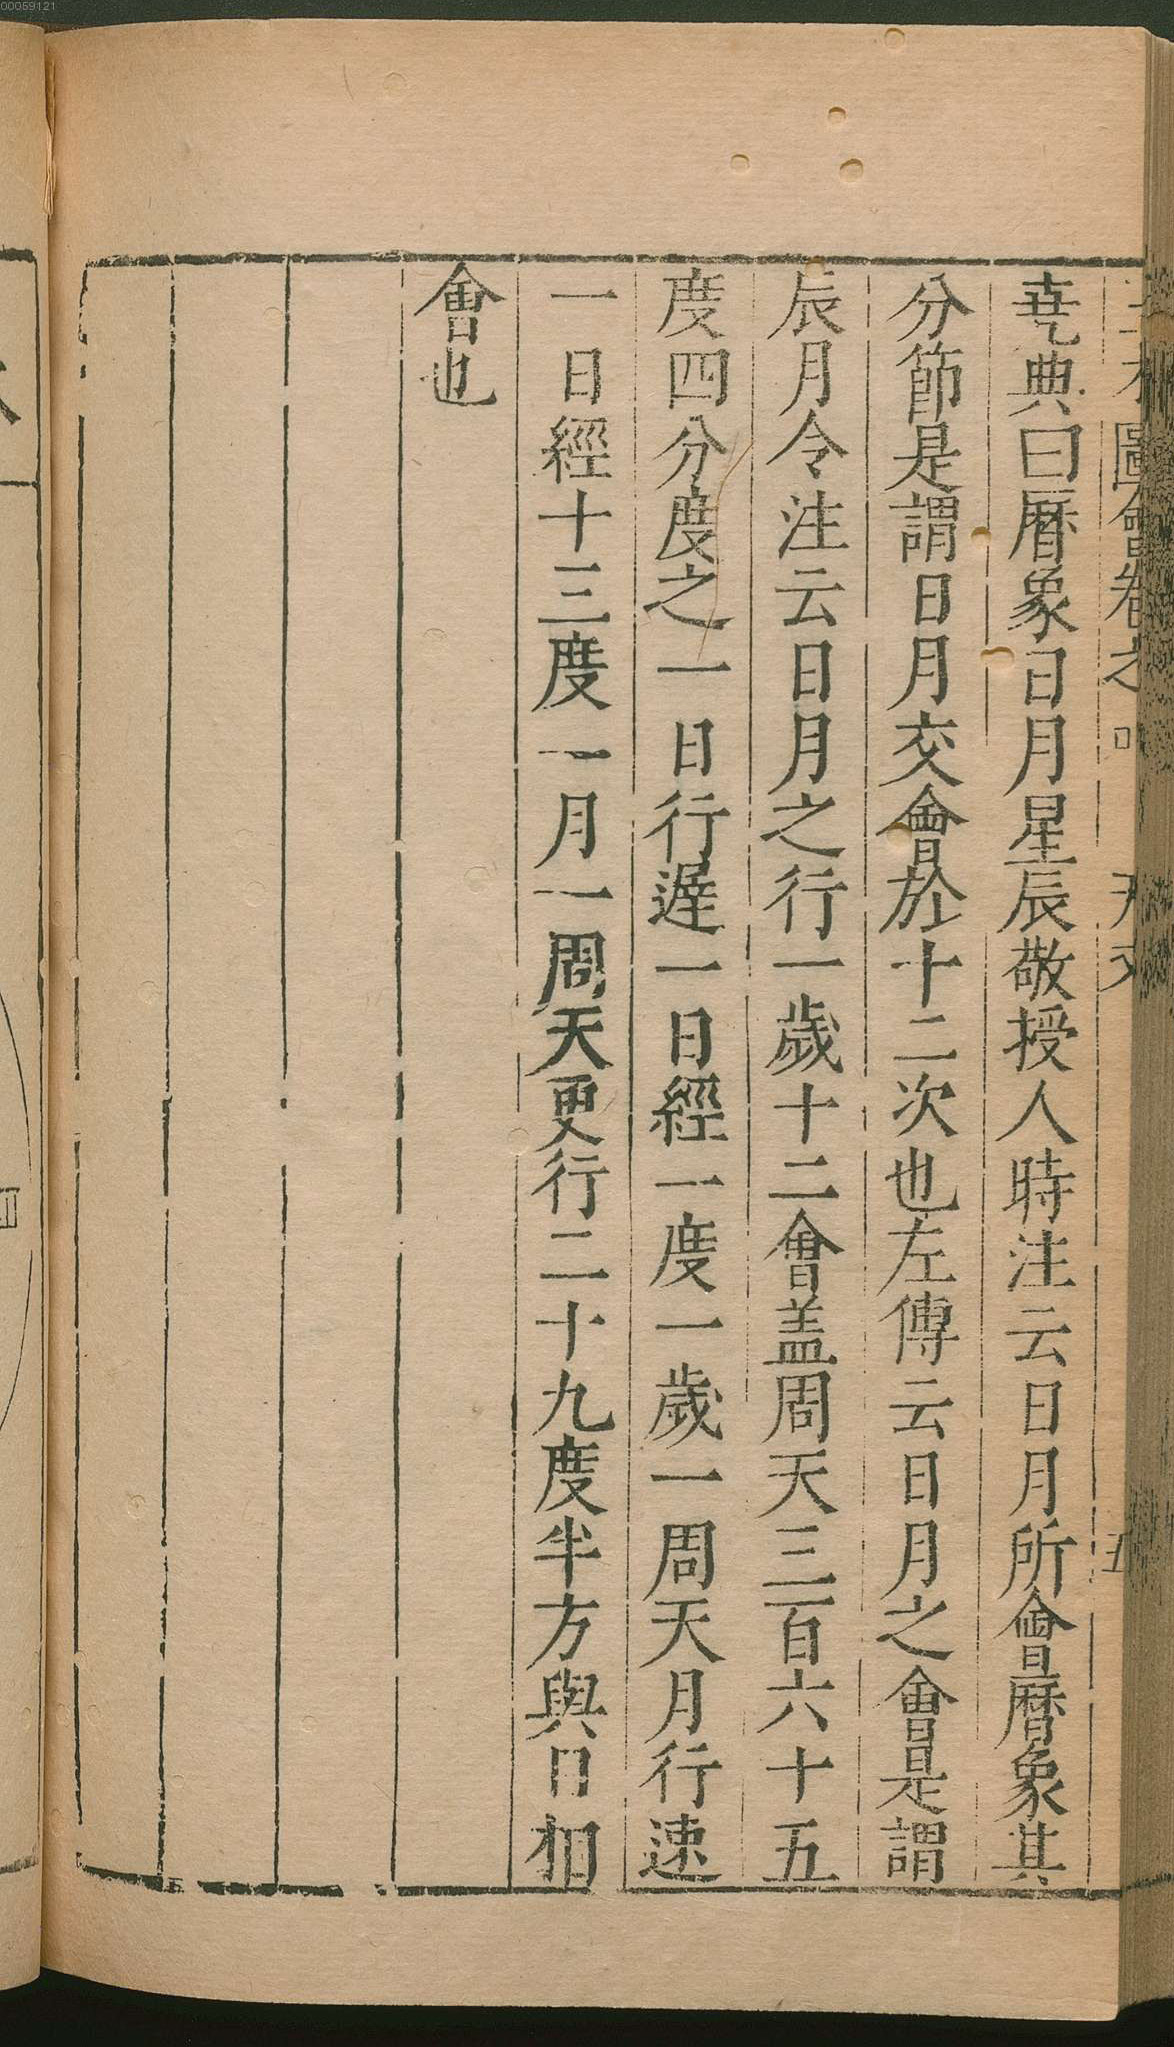 00059121
圖會卷之
天文
五
堯典曰曆象日月星辰敬授人時注云日月所會曆象其
分節是謂日月交會於十二次也左傳云日月之會是謂
辰月令注云日月之行一歲十二會盖周天三百六十五
度四分度之一日行遲一日經一度一歲一周天月行速
一日經十三度一月一周天更行二十九度半方與日相
會也